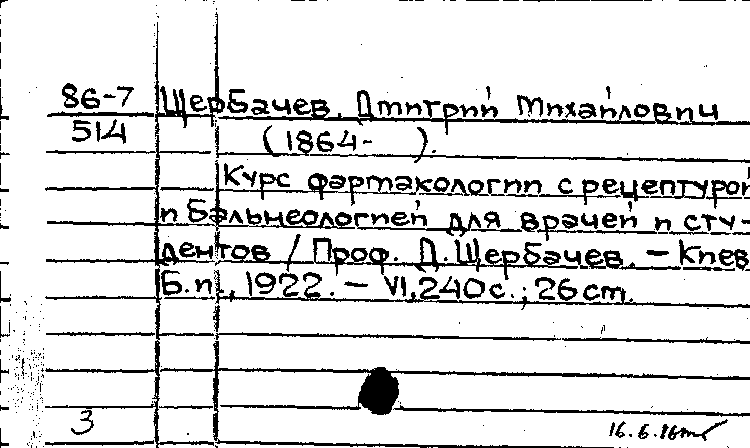 86-7 Щербачев, Дмитрий Михайлович
514 (1864- ).
Курс фармакологии с рецептурой
и бальнеологией для врачей и сту-
дентов / Проф. Д. Щербачев. — Киев
Б.и., 1922. — VI, 240 с.; 26 cm.
3